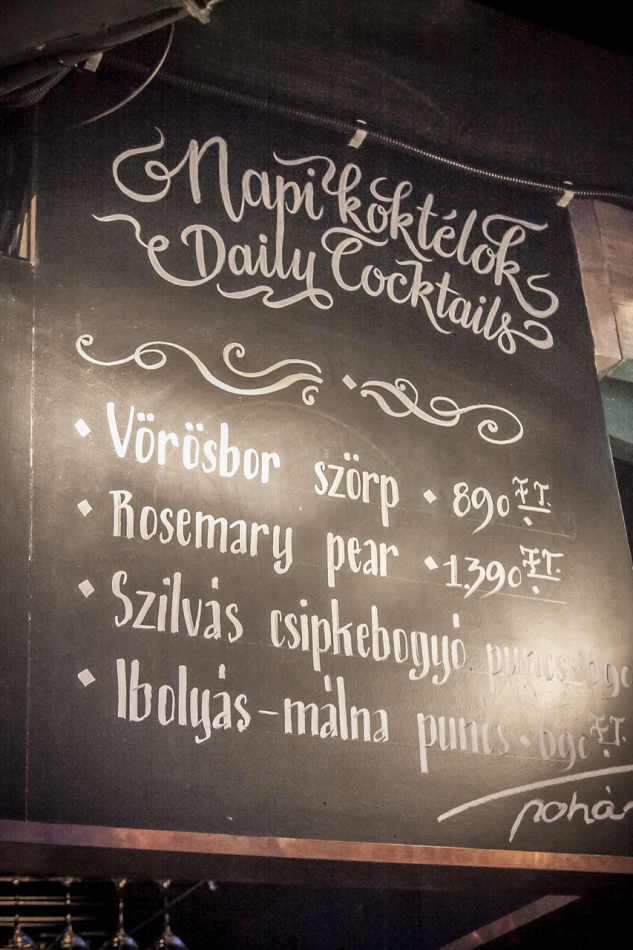 Napi koktélok
Daily Cocktails
Vörösbor szörp • 890 FT.
Rosemary pear • 1.390 FT.
Szilvás csipkebogyó puncs • 690
Ibolyás-málna puncs • 690 FT.
pohá